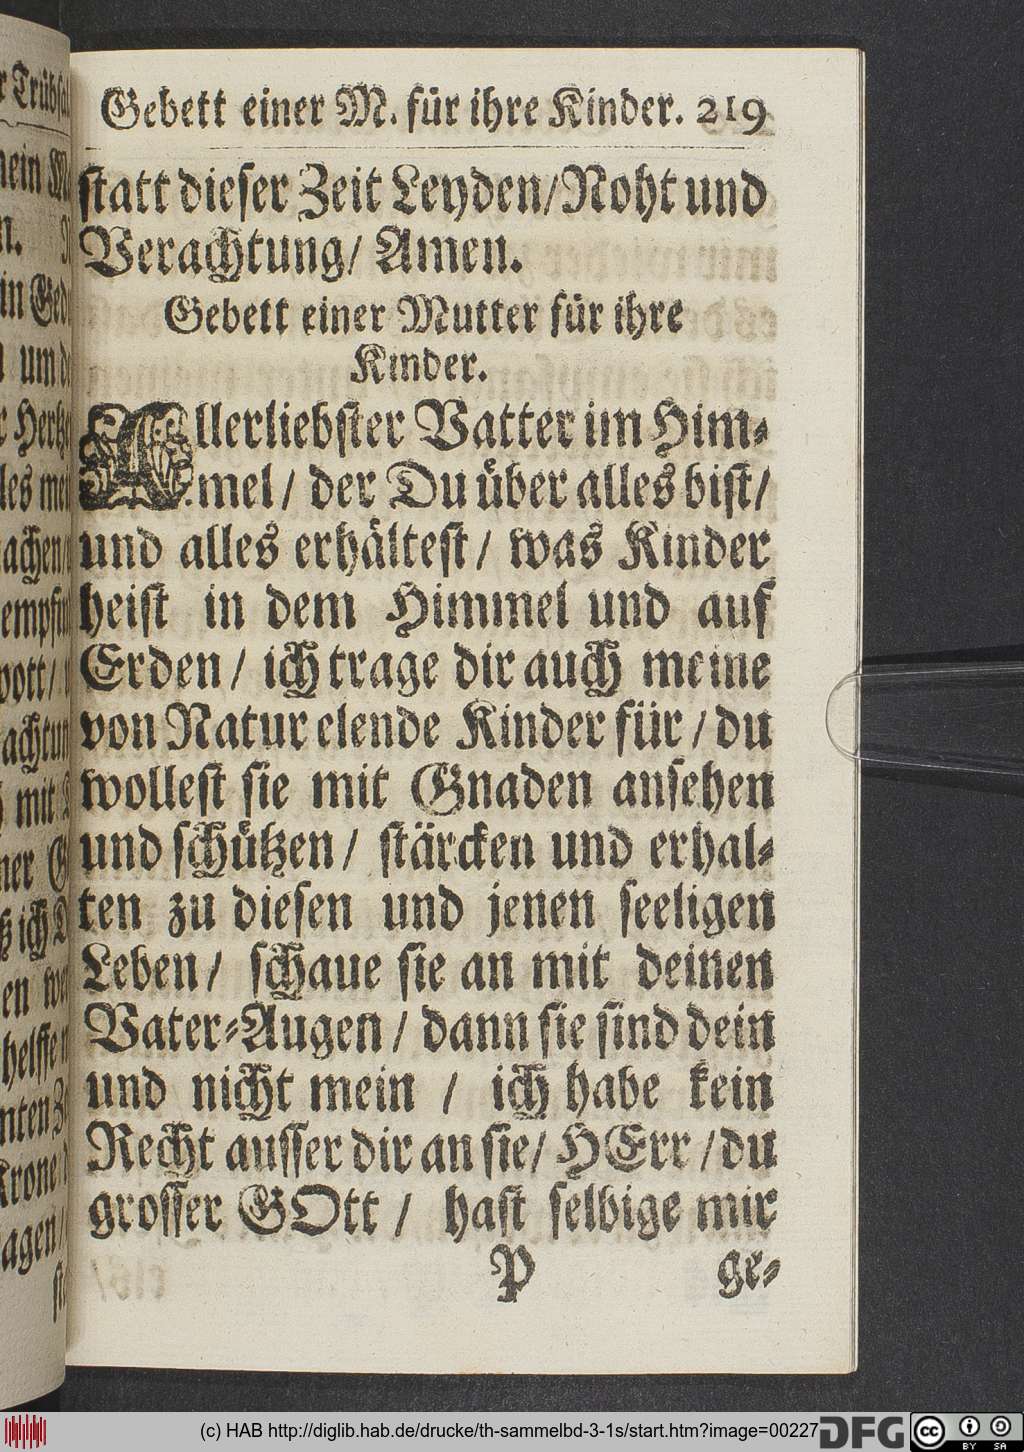 Gebett einer M. für ihre Kinder. 219
statt dieser Zeit Leyden/Noht und
Verachtung/ Amen.
Gebett einer Mutter für ihre
Kinder.
Allerliebster Vatter im Him-
mel / der Du über alles bist/
und alles erhältest / was Kinder
heist in dem Himmel und auf
Erden / ich trage dir auch meine
von Natur elende Kinder für / du
wollest sie mit Gnaden ansehen
und schützen / stärcken und erhal-
ten zu diesen und jenen seeligen
Leben / schaue sie an mit deinen
Vater-Augen / dann sie sind dein
und nicht mein / ich habe kein
Recht ausser dir an sie/ HErr /du
grosser GOtt / hast selbige mir
P ge-
(c) HAB http://diglib.hab.de/drucke/th-sammelbd-3-1s/start.htm?image=00227
DFG
cc
BY SA